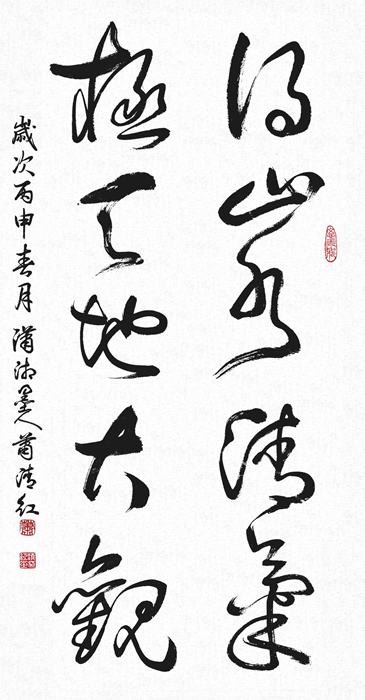 得山水清氣
極天地大觀
歲次丙申春月 瀟湘墨人蕭清紅